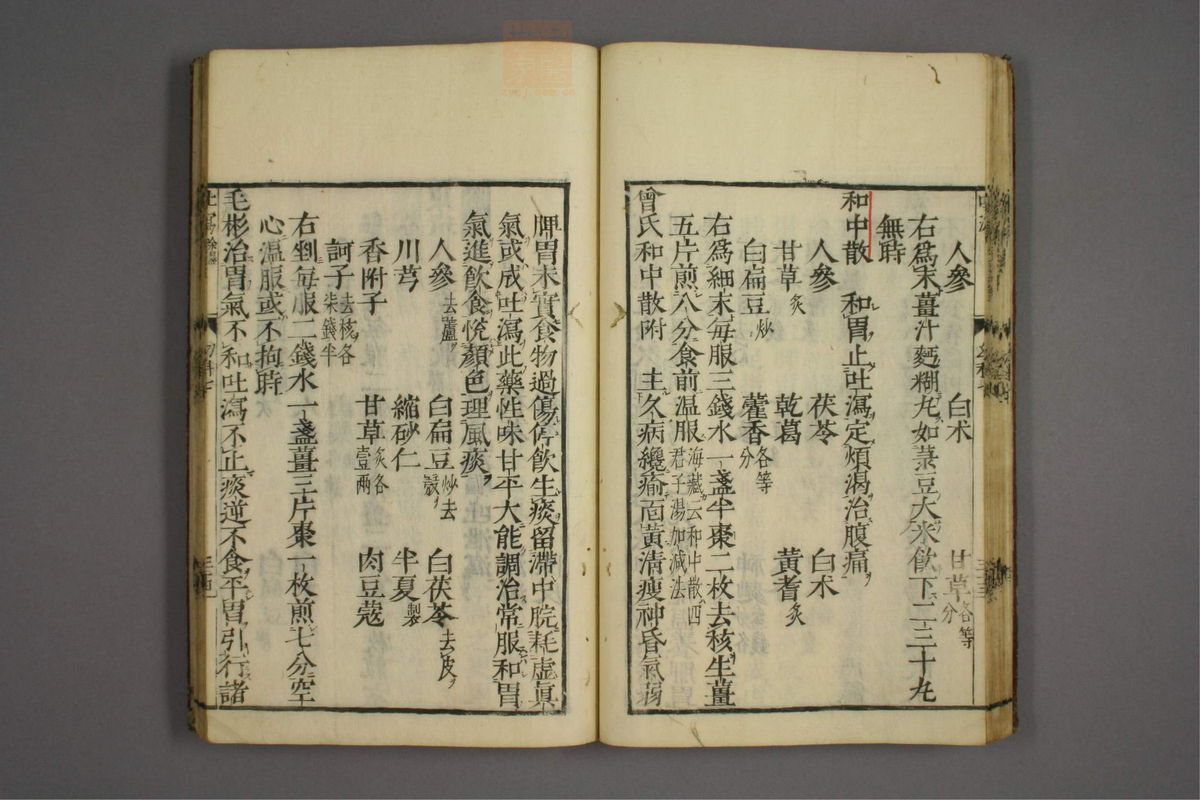 人參 白朮 甘草各等分
右爲末薑汁麪糊丸如菉豆大米飲下二三十丸
無時
和中散 和胃止吐瀉定煩渴治腹痛
人參 茯苓 白朮
甘草炙 乾葛 黃耆炙
白扁豆炒 藿香各等分
右爲細末每服三錢水一盞半棗二枚去核生薑
五片煎八分食前温服海藏云和中散四君子湯加減法
曾氏和中散附 主久病纔瘉面黃清瘦神昏氣弱
脾胃未實食物過傷停飲生痰留滯中脘耗虛眞
氣或成吐瀉此藥性味甘平大能調治常服和胃
氣進飲食悅顏色理風痰
人參去蘆 白扁豆炒去殼 白茯苓去皮
川芎 縮砂仁 半夏製
香附子 甘草炙各壹兩 肉豆蔻
訶子去核各柒錢半
右剉每服二錢水一盞薑三片棗一枚煎七分空
心温服或不拘時
毛彬治胃氣不和吐瀉不止痰逆不食平胃引行諸